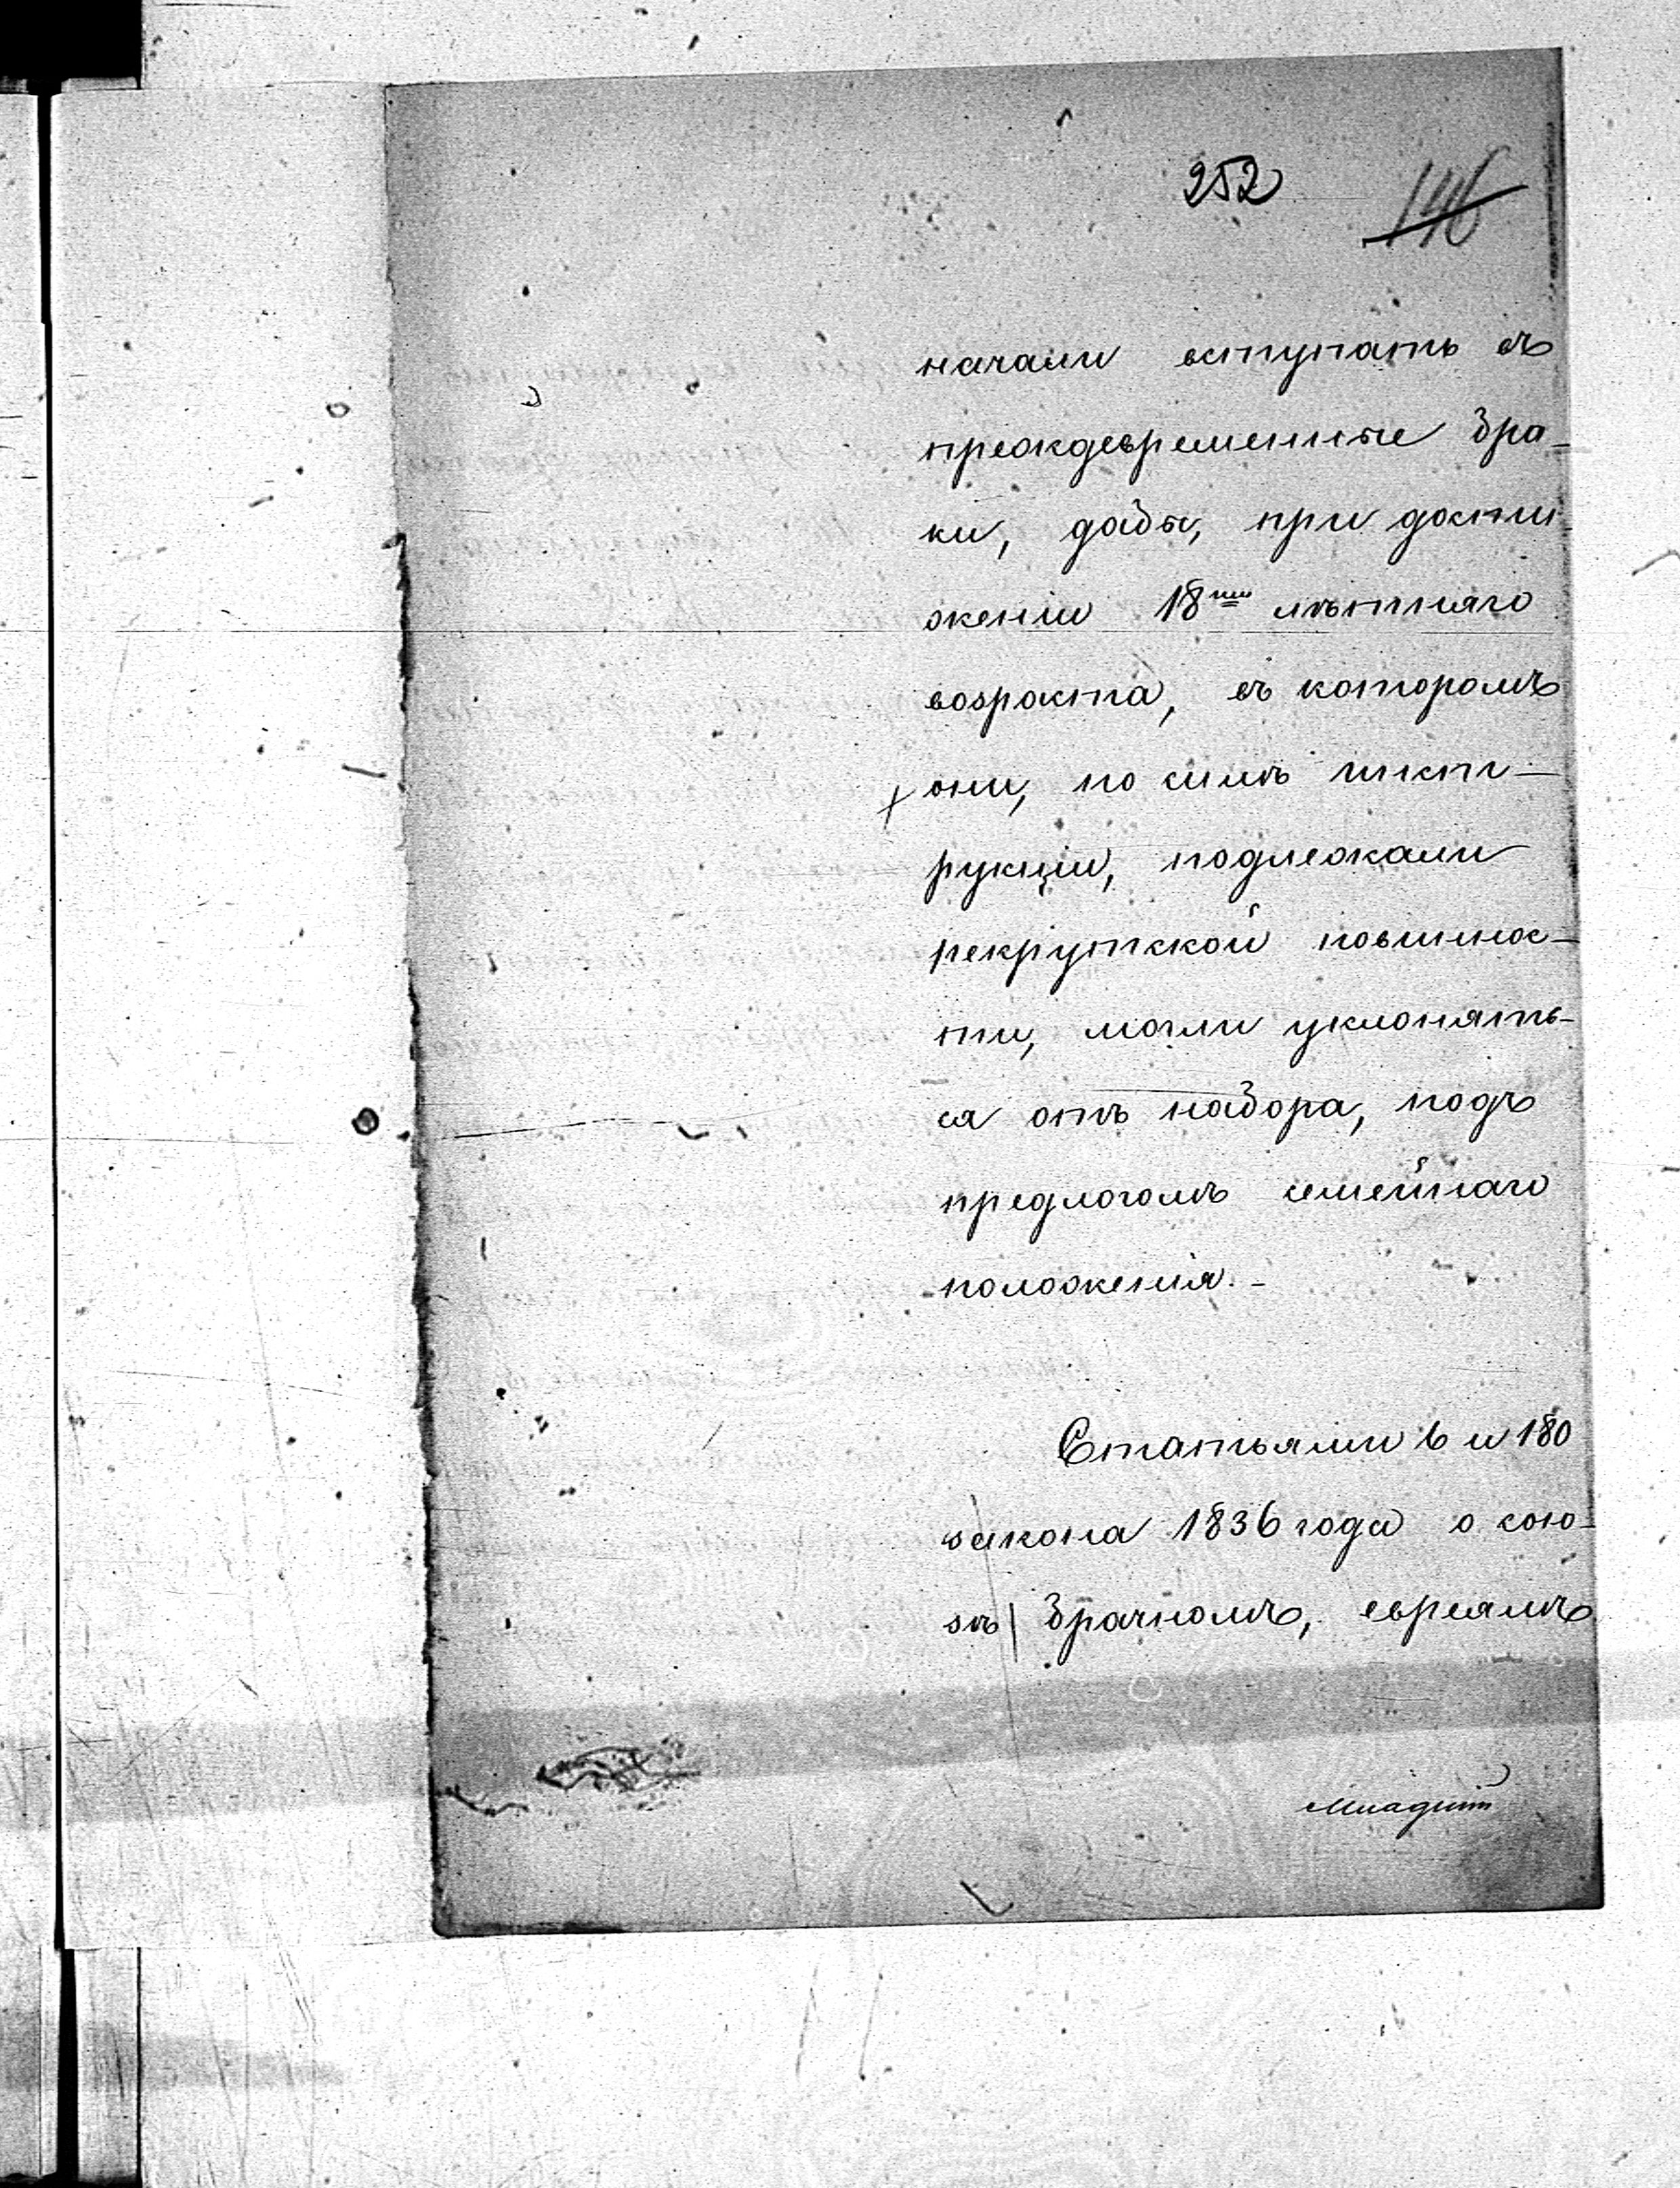 252
146
начали вступать въ
преждевременные бра-
ки, дабы, при дости-
женіи 18ти лѣтняго
возраста, въ которомъ
они, по силѣ инст-
рукціи, подлежали
рекрутской повиннос-
ти, могли уклонять-
ся отъ набора, подъ
предлогомъ семейнаго
положенія. -
Статьями 6 и 180
закона 1836 года о сою-
зѣ брачномъ, евреямъ